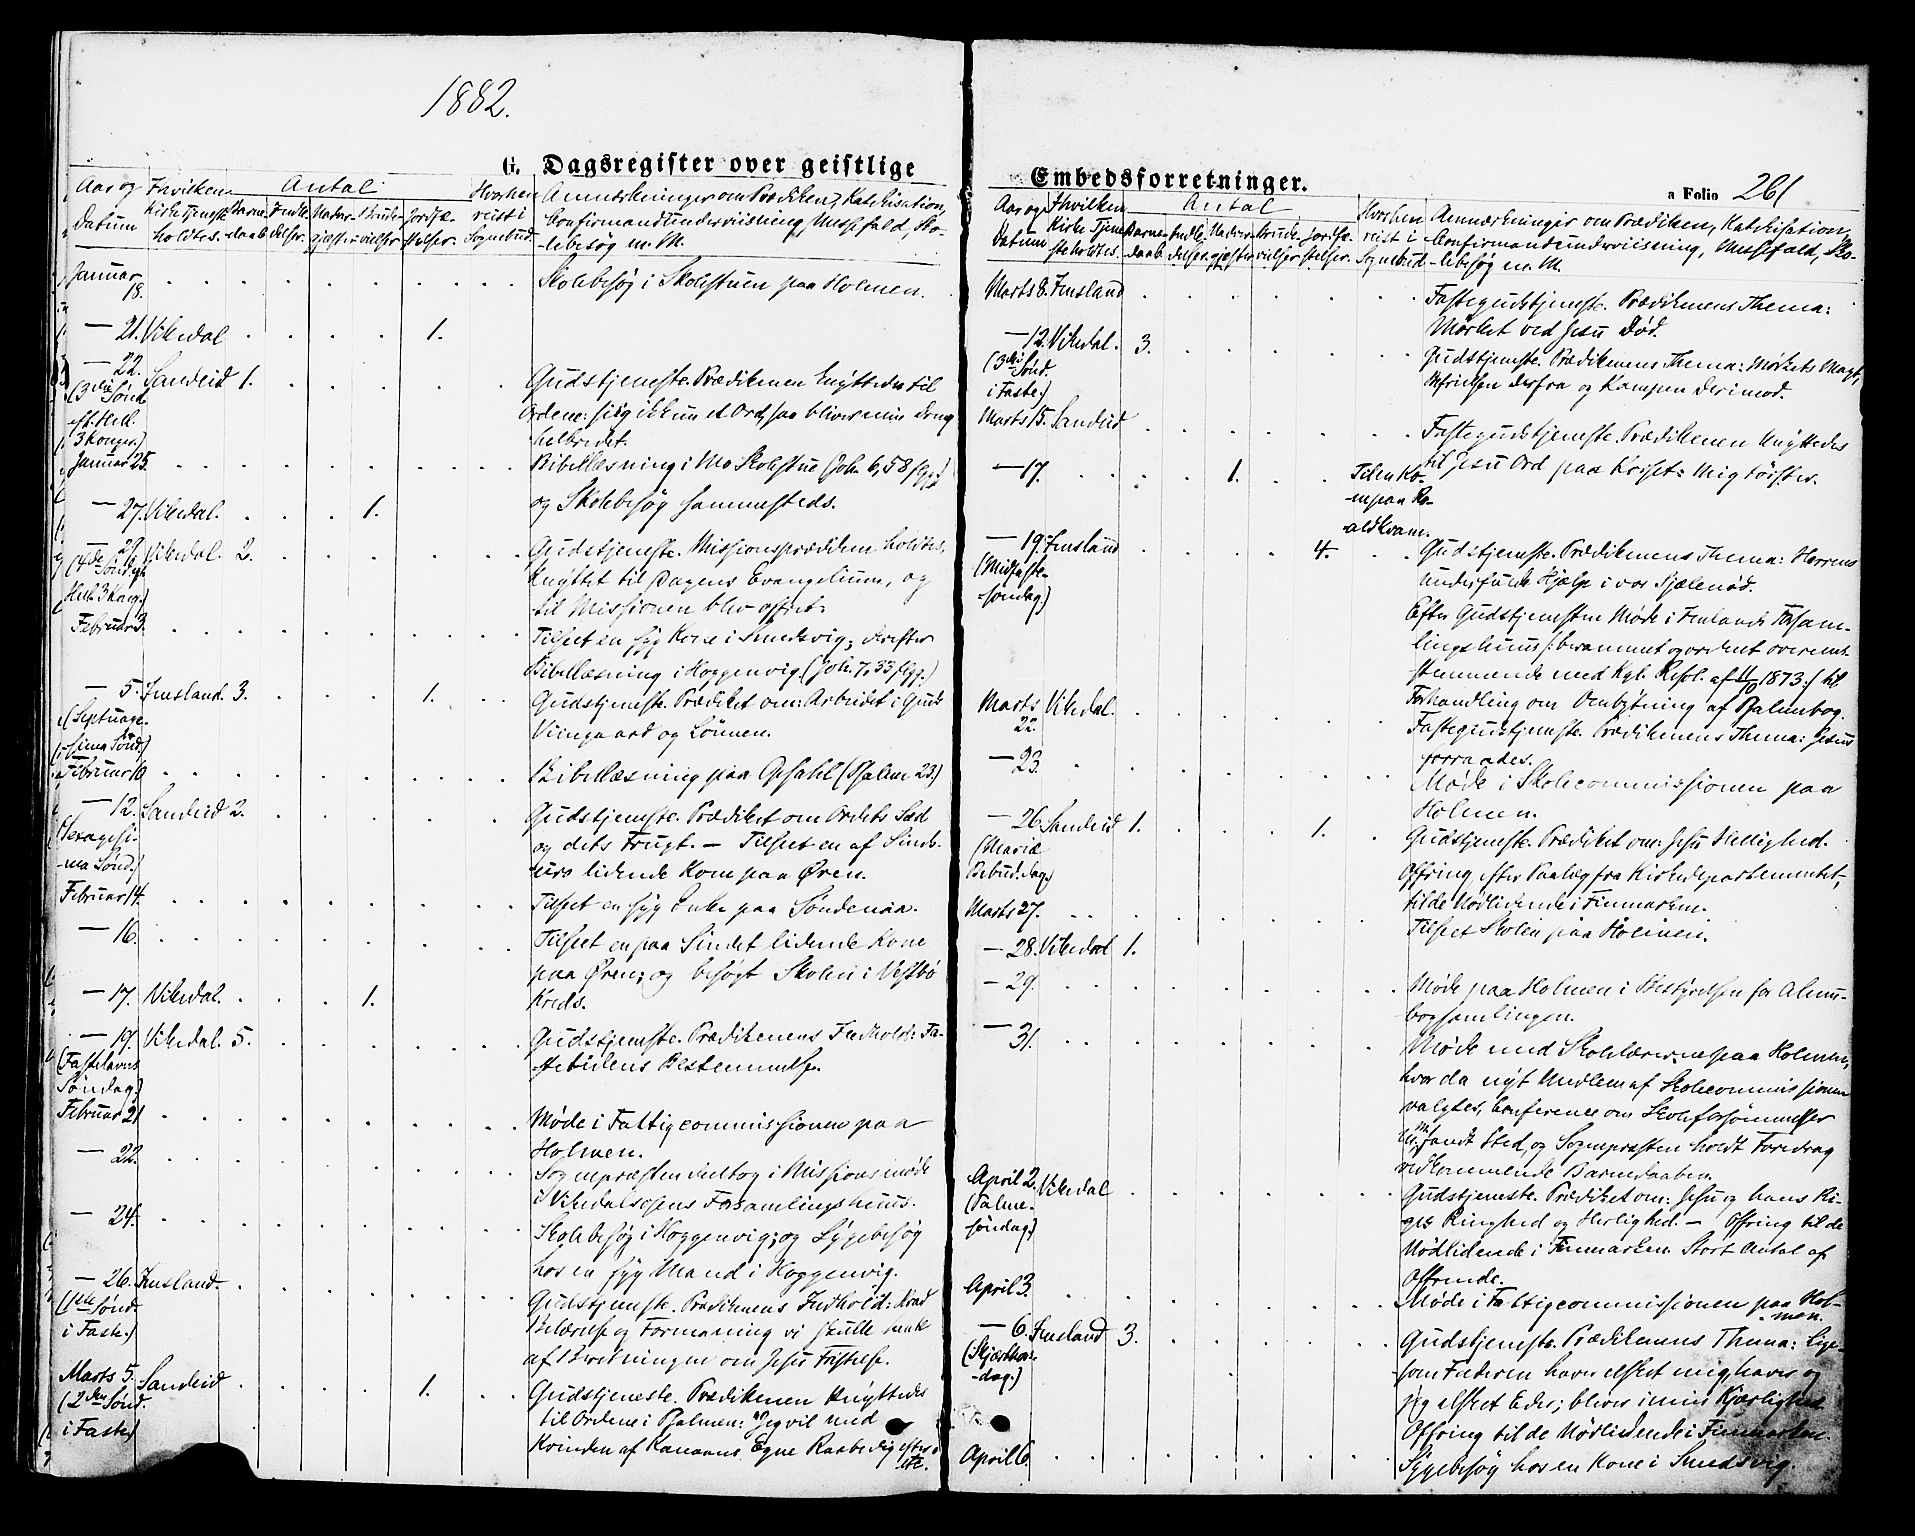 1882.
G. Dagsregister over geistlige
Aar og Datum
I hvilken Kirke Tjeneste holdtes.
Antal
Barnedaab
Indledelser.
Nadvergjester
Brudevielser
Jordfæstelser.
Hvorhen reist i Sognebud.
Anmærkninger om Prædiken, Katekisation,
Confirmandtunderviisning, Messefald, Sko-
lebesøg m. M.
Januar 18. Skolebesøg i Skolestuen paa Holmen.
— 21. Vikedal 1.
— 22. Sandeid 1. Gudstjeneste. Prædikenen knyttedes til
(3die Sønd. eft. Hell. 3 Konger.)
Ordene: siig ikkun et Ord, saa bliver min Dreng
helbredet.
Januar 25. Bibellæsning i Mo Skolestue (Joh. 6,58 flgd)
og Skolebesøg sammesteds.
— 27. Vikedal. 1.
— 29. Vikedal. 2. Gudstjeneste. Missionsprædiken holdtes,
(4de Sønd. eft. Hell. 3 Kong.)
knyttet til Dagens Evangelium, og
til Missionen blev offret.
Februar 3. Tilseet en syg Kone i Imedsvig; derefter
Bibellæsning i Hoggenvig (Joh. 7,33 flgg.)
— 5. Imsland. 3. 1. Gudstjeneste. Prædiket om: Arbeidet i Guds
(Septuage-
sima Sønd.)
Viingaard og Lønnen.
Februar 10 Bibellæsning paa Opsahl (Psalme 23.)
— 12. Sandeid 2. Gudstjeneste. Prædiket om Ordets Sæd
(Sexagesi-
ma Sønd.)
og dets Frugt. — Tilseet en af Sinds-
lidende Kone paa Øren.
Februar 14. Tilseet en syg Enke paa Søndenaa.
— 16. Tilseet en paa Sindet lidende Kone
paa Øren; og besøgt Skolen i Vestbø
Kreds.
— 17. Vikedal. 1.
— 19. Vikedal. 5. Gudstjeneste. Prædikenens Indhold: Fa-
(Fastelavns Søndag)
stetidens Bestemmelse.
Februar 21 Møde i Fattigcommissionen paa
Holmen.
— 22. Sognepræsten deeltog i Missionsmøde
i Vikedalsøens Forsamlingshuus.
— 24. Skolebesøg i Hoggenvig; og Sygebesøg
hos en syg Mand i Hoggenvig.
— 26. Imsland. Gudstjeneste. Prædikenens Indhold: Hvad
(1ste Sønd. i Faste.)
Belærelse og Formaning vi skulle hente
af Beretningen om Jesu Fristelse.
Marts 5. Sandeid 1. Gudstjeneste. Prædikenen knyttedes
(2den Sønd. i Faste)
til Ordene i Psalmen: "Jeg vil med
Kvinden af Kanaans Egne Raabe dig efter
etc.
Embedsforretninger.
a Folio 261
Aar og Datum
I hvilken Kirke Tjeneste holdtes.
Antal
Barnedaab.
Indledelser.
Nadvergjester
Brudevielser
Jordfæstelser.
Hvorhen reist i Sognebud
Anmærkninger om Prædiken, Katekisation,
Confirmandunderviisning, Messefald, Sko-
lebesøg m. M.
Marts 8. Imsland Fastegudstjeneste. Prædikenens Thema:
Mørket ved Jesu Død.
— 12. Vikedal. 3. Gudstjeneste. Prædikenens Thema: Mørkets Magt,
(3die Sønd. i Faste.)
Befrielsen derfra og Kampen derimod.
Marts 15. Sandeid Fastegudstjeneste. Prædikenen knyttedes
til Jesu Ord paa Korset: Mig tørster.
— 17. 1. Til en Ko-
ne paa Ro-
aldkvam.
— 19. Imsland 4. Gudstjeneste. Prædikenens Thema: Herrens
(Midfaste-
søndag)
underfulde Hjælp i vor Sjælenød.
Efter Gudstjenesten Møde i Imslands Forsam-
lingshuus /: berammet og ordnet overeens-
stemmende med Kgl. Resol. af 1873 :/ til
Forhandling om Ombytning af Psalmebog.
Marts 22. Vikedal. Fastegudstjeneste. Prædikenens Thema: Jesus
forraades.
— 23. Møde i Skolecommissionen paa
Holmen.
— 26. Sandeid 1. 1. Gudstjeneste. Prædiket om: Jesu Hellighed.
(Mariæ Bebud. dag.)
Offring, efter Paalæg fra Kirkedepartementet,
til de Nødlidende i Finmarken.
Marts 27. Tilseet Skolen paa Holmen.
— 28. Vikedal 1.
— 29. Møde paa Holmen i Bestyrelsen for Almue-
bogsamlingen.
— 31. Møde med Skolelærerne paa Holmen,
hvor da nyt Medlem af Skolecommissionen
valgtes, Conference om Skoleforsømmelser
m. m. fandt Sted, og Sognepræsten holdt Foredrag
vedkommende Barnedaaben.
April 2. Vikedal Gudstjeneste. Prædiket om: Jesu og hans Ri-
(Palme-
søndag.)
ges Ringhed og Herlighed. — Offring til de
Nødlidende i Finmarken. Stort Antal af
Offrende.
April 3. Møde i Fattigcommissionen paa Hol-
men.
— 6. Imsland 3. Gudstjeneste. Prædikenens Thema: Lige-
(Skjærthors-
dag.)
som Faderen haver elsket mig, haver og
jeg elsket Eder; bliver i min Kjærlighed.
Offring til de Nødlidende i Finmarken.
April 6. Sygebesøg hos en Kone i Imedsvig.